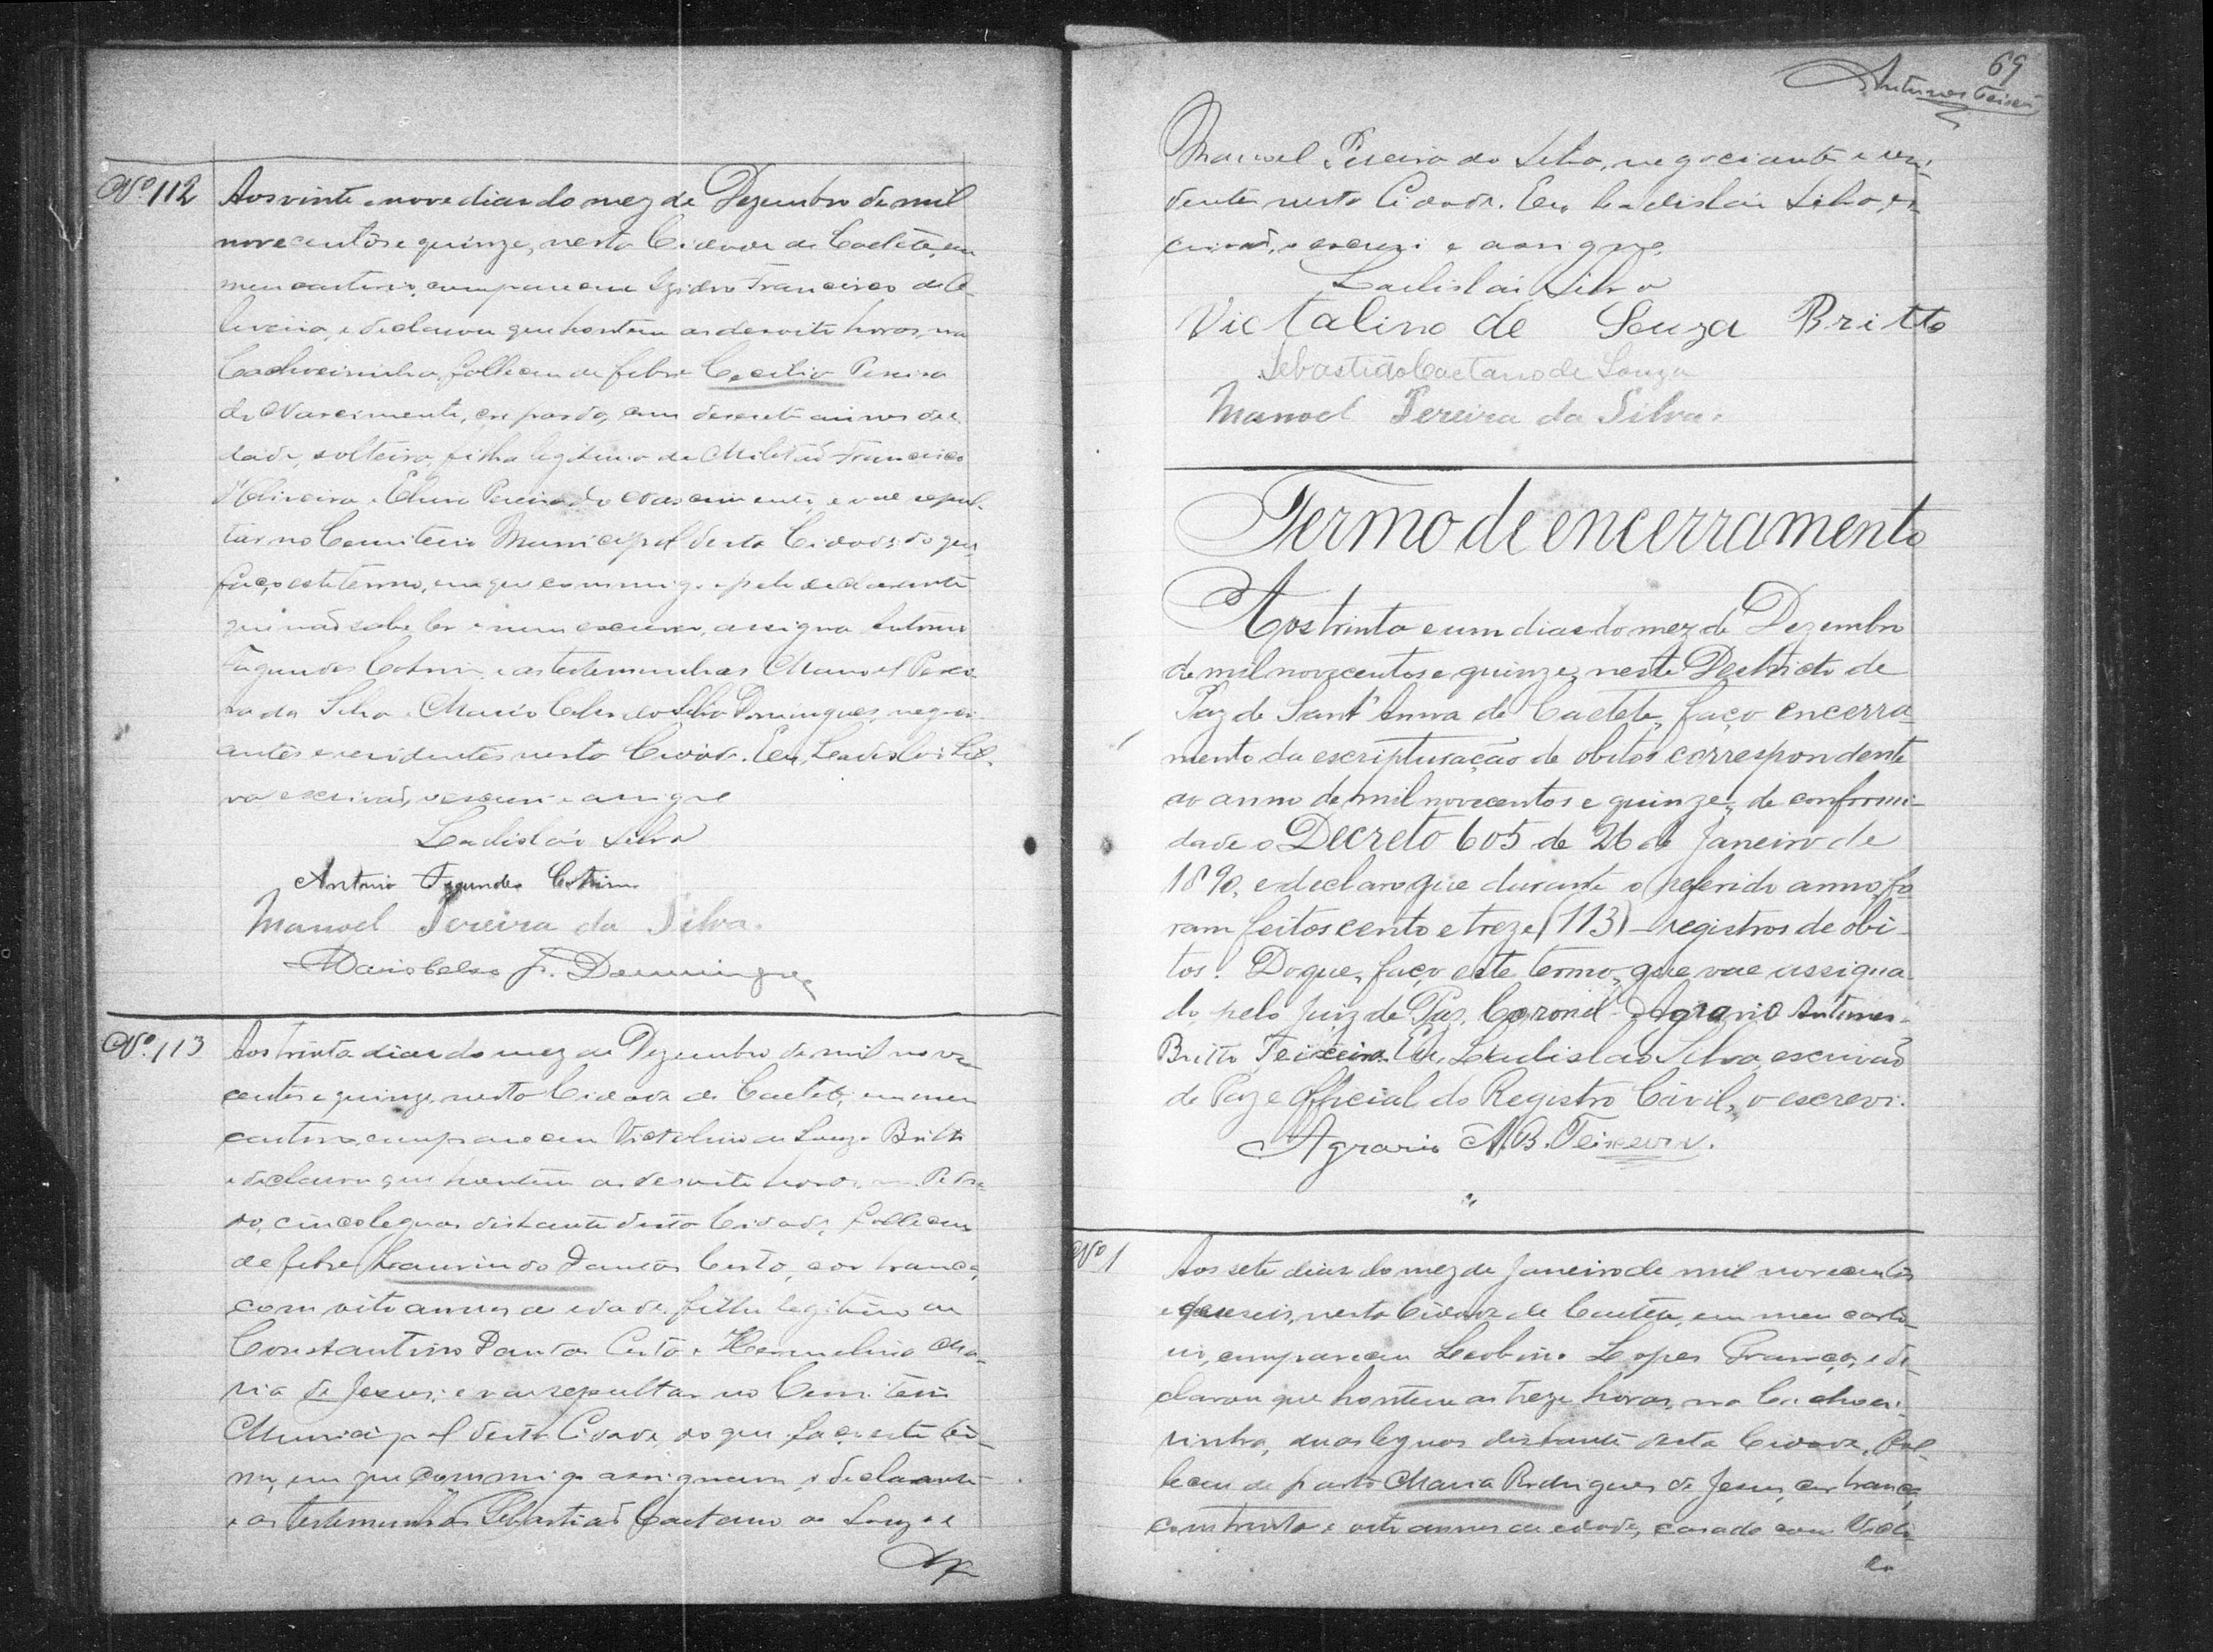 Nº 112
Aos vinte e nove dias do mez de Dezembro de mil
novecentos e quinze, nesta Cidade de Caeteté, em
meu cartorio, compareceu Izidro Francisco de O-
liveira, e declarou que hontem as dezoito horas, na
Cachoeirinha, falleceu de febre Cecilia Pereira
do Nascimento, cor parda, com dezesete annos de e-
dade, solteira, filha legitima de Militão Francisco
d'Oliveira e Pereira do Nascimento, e vae sepul-
tar no Cemiterio Municipal desta Cidade; do que
faço este termo, em que commigo e pelo declarante
que não sabe ler e nem escrever, assigna Antonio
Fagundes Cotrim, e as testemunhas Manoel Perei-
ra da Silva e Mario Celso Domingues, negoci-
antes e residentes nesta Cidade. Eu, Ladisláo Sil-
va escrivão, o escrevi e assigno
Ladisláo Silva
Antonio Fagundes Cotrim
Manoel Pereira da Silva.
Mario Celso F. Domingues
Nº 113
Aos trinta dias do mez de Dezembro de mil nove-
centos e quinze, nesta Cidade de Caeteté, em meu
cartorio, compareceu Victalino de Souza Britto
e declarou que hontem as dezoito horas, no
cinco leguas distante desta Cidade, falleceu
de febre Laurindo Dantas Certo, cor branca,
com oito annos de edade, filho legitimo de
Constantino Dantas Certo e Hermelina Ma-
ria de Jesus; e vae sepultar no Cemiterio
Municipal desta Cidade, do que faço este ter-
mo, em que commigo assignam, o declarante
e as testemunhas Sebastião Caetano de Souza e
69
Antunes Teixeira
Manoel Pereira da Silva, negociante e resi-
dente nesta Cidade. Eu, Ladisláo Silva, es-
crivão, o escrevi e assigno.
Ladisláo Silva
Victalino de Souza Britto
Sebastião Caetano de Souza
Manoel Pereira da Silva.
Termo de encerramento
Aos trinta e um dias do mez de Dezembro
de mil novecentos e quinze, neste Destricto de
Paz de Sant'Anna de Caeteté, faço encerra-
mento da escripturação de obitos correspondente
ao anno de mil novecentos e quinze, de conformi-
dade o Decreto 605 de 26 de Janeiro de
1890, e declaro que durante o referido anno, fo-
ram feitos cento e treze (113) – registros de obi-
tos. Do que, faço este termo, que vae assigna-
do, pelo Juiz de Paz, Coronel Agrario Antunes
Britto Teixeira. Eu, Ladisláo Silva, escrivão
de Paz e Official do Registro Civil, o escrevi.
Agrario A. B. Teixeira.
Nº 1
Aos sete dias do mez de Janeiro de mil novecentos
e dezeseis, nesta Cidade de Caeteté, em meu carto-
rio, compareceu Leobino Lopes França, e de-
clarou que hontem as treze horas, na Cachoei-
rinha, duas leguas distante desta Cidade, fal-
leceu de parto Maria Rodrigues de Jesus, cor branca,
com trinta e oito annos de edade, casada com